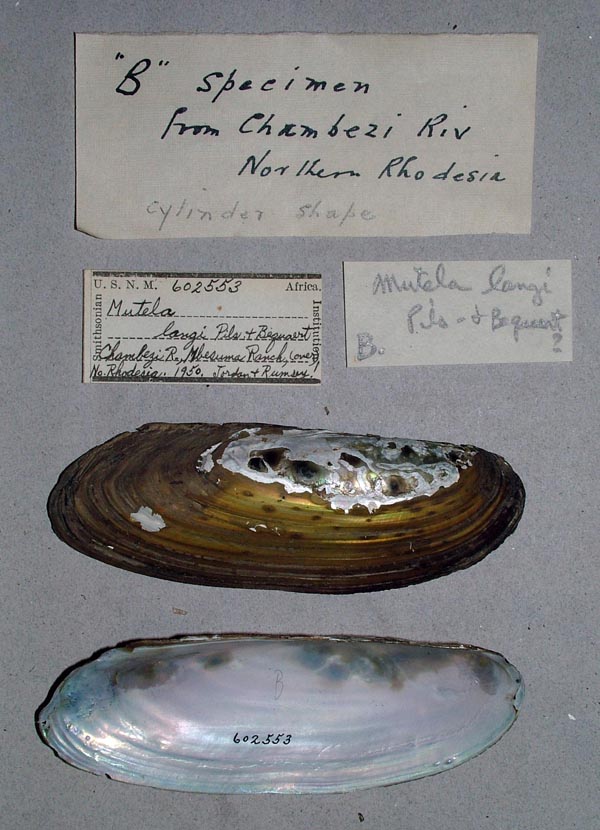 "B" specimen
from Chambezi Riv
Northern Rhodesia
cylinder shape
U. S. N. M. 602553 Africa.
Smithsonian
Institution
Mutela
langi Pils + Bequaert
Chambezi R., Mbesuma Ranch, (over)
No. Rhodesia. 1950. Jordan + Rumsey.
Mutela langi
Pils - + Bequert
B. ?
B
602553